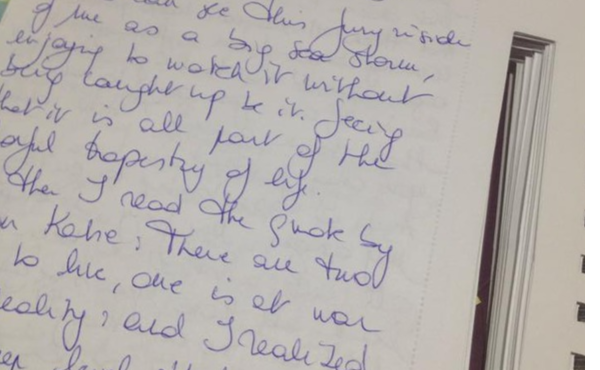 this fury inside
of me as a big sea storm,
enjoying to watch it without
being caught up be it. Seeing
that it is all part of the
tapestry of life.
then I read the quok by
Katie: There are two
to live, one is at war
reality; and I realized